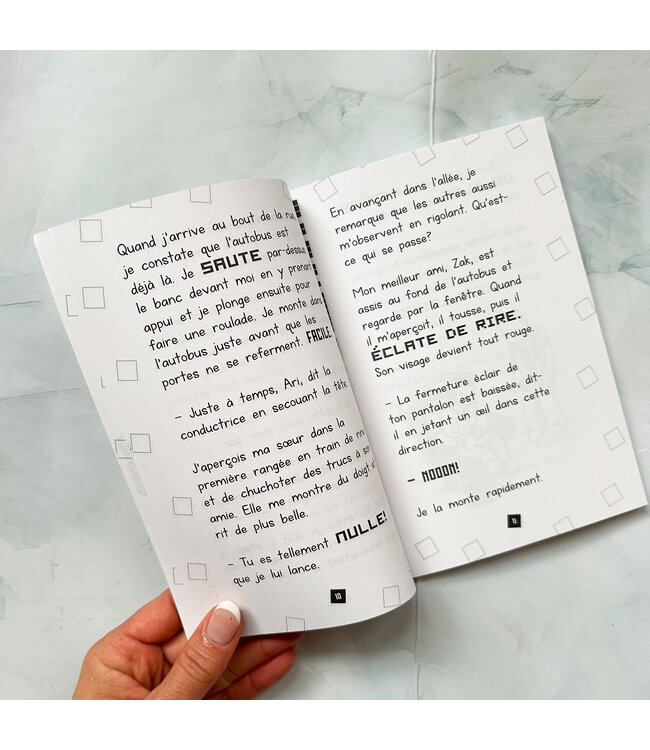 Quand j'arrive au bout de la rue,
je constate que l'autobus est
déjà là. Je SAUTE par-dessus
le banc devant moi en y prenant
appui et je plonge ensuite pour
faire une roulade. Je monte dans
l'autobus juste avant que les
portes ne se referment. FACILE.
– Juste à temps, Ari, dit la
conductrice en secouant la tête.
J'aperçois ma sœur dans la
première rangée en train de rire
et de chuchoter des trucs à son
amie. Elle me montre du doigt et
rit de plus belle.
– Tu es tellement NULLE!
que je lui lance.
10
En avançant dans l'allée, je
remarque que les autres aussi
m'observent en rigolant. Qu'est-
ce qui se passe?
Mon meilleur ami, Zak, est
assis au fond de l'autobus et
regarde par la fenêtre. Quand
il m'aperçoit, il tousse, puis il
ÉCLATE DE RIRE.
Son visage devient tout rouge.
– La fermeture éclair de
ton pantalon est baissée, dit-
il en jetant un œil dans cette
direction.
– NOOON!
Je la monte rapidement.
11